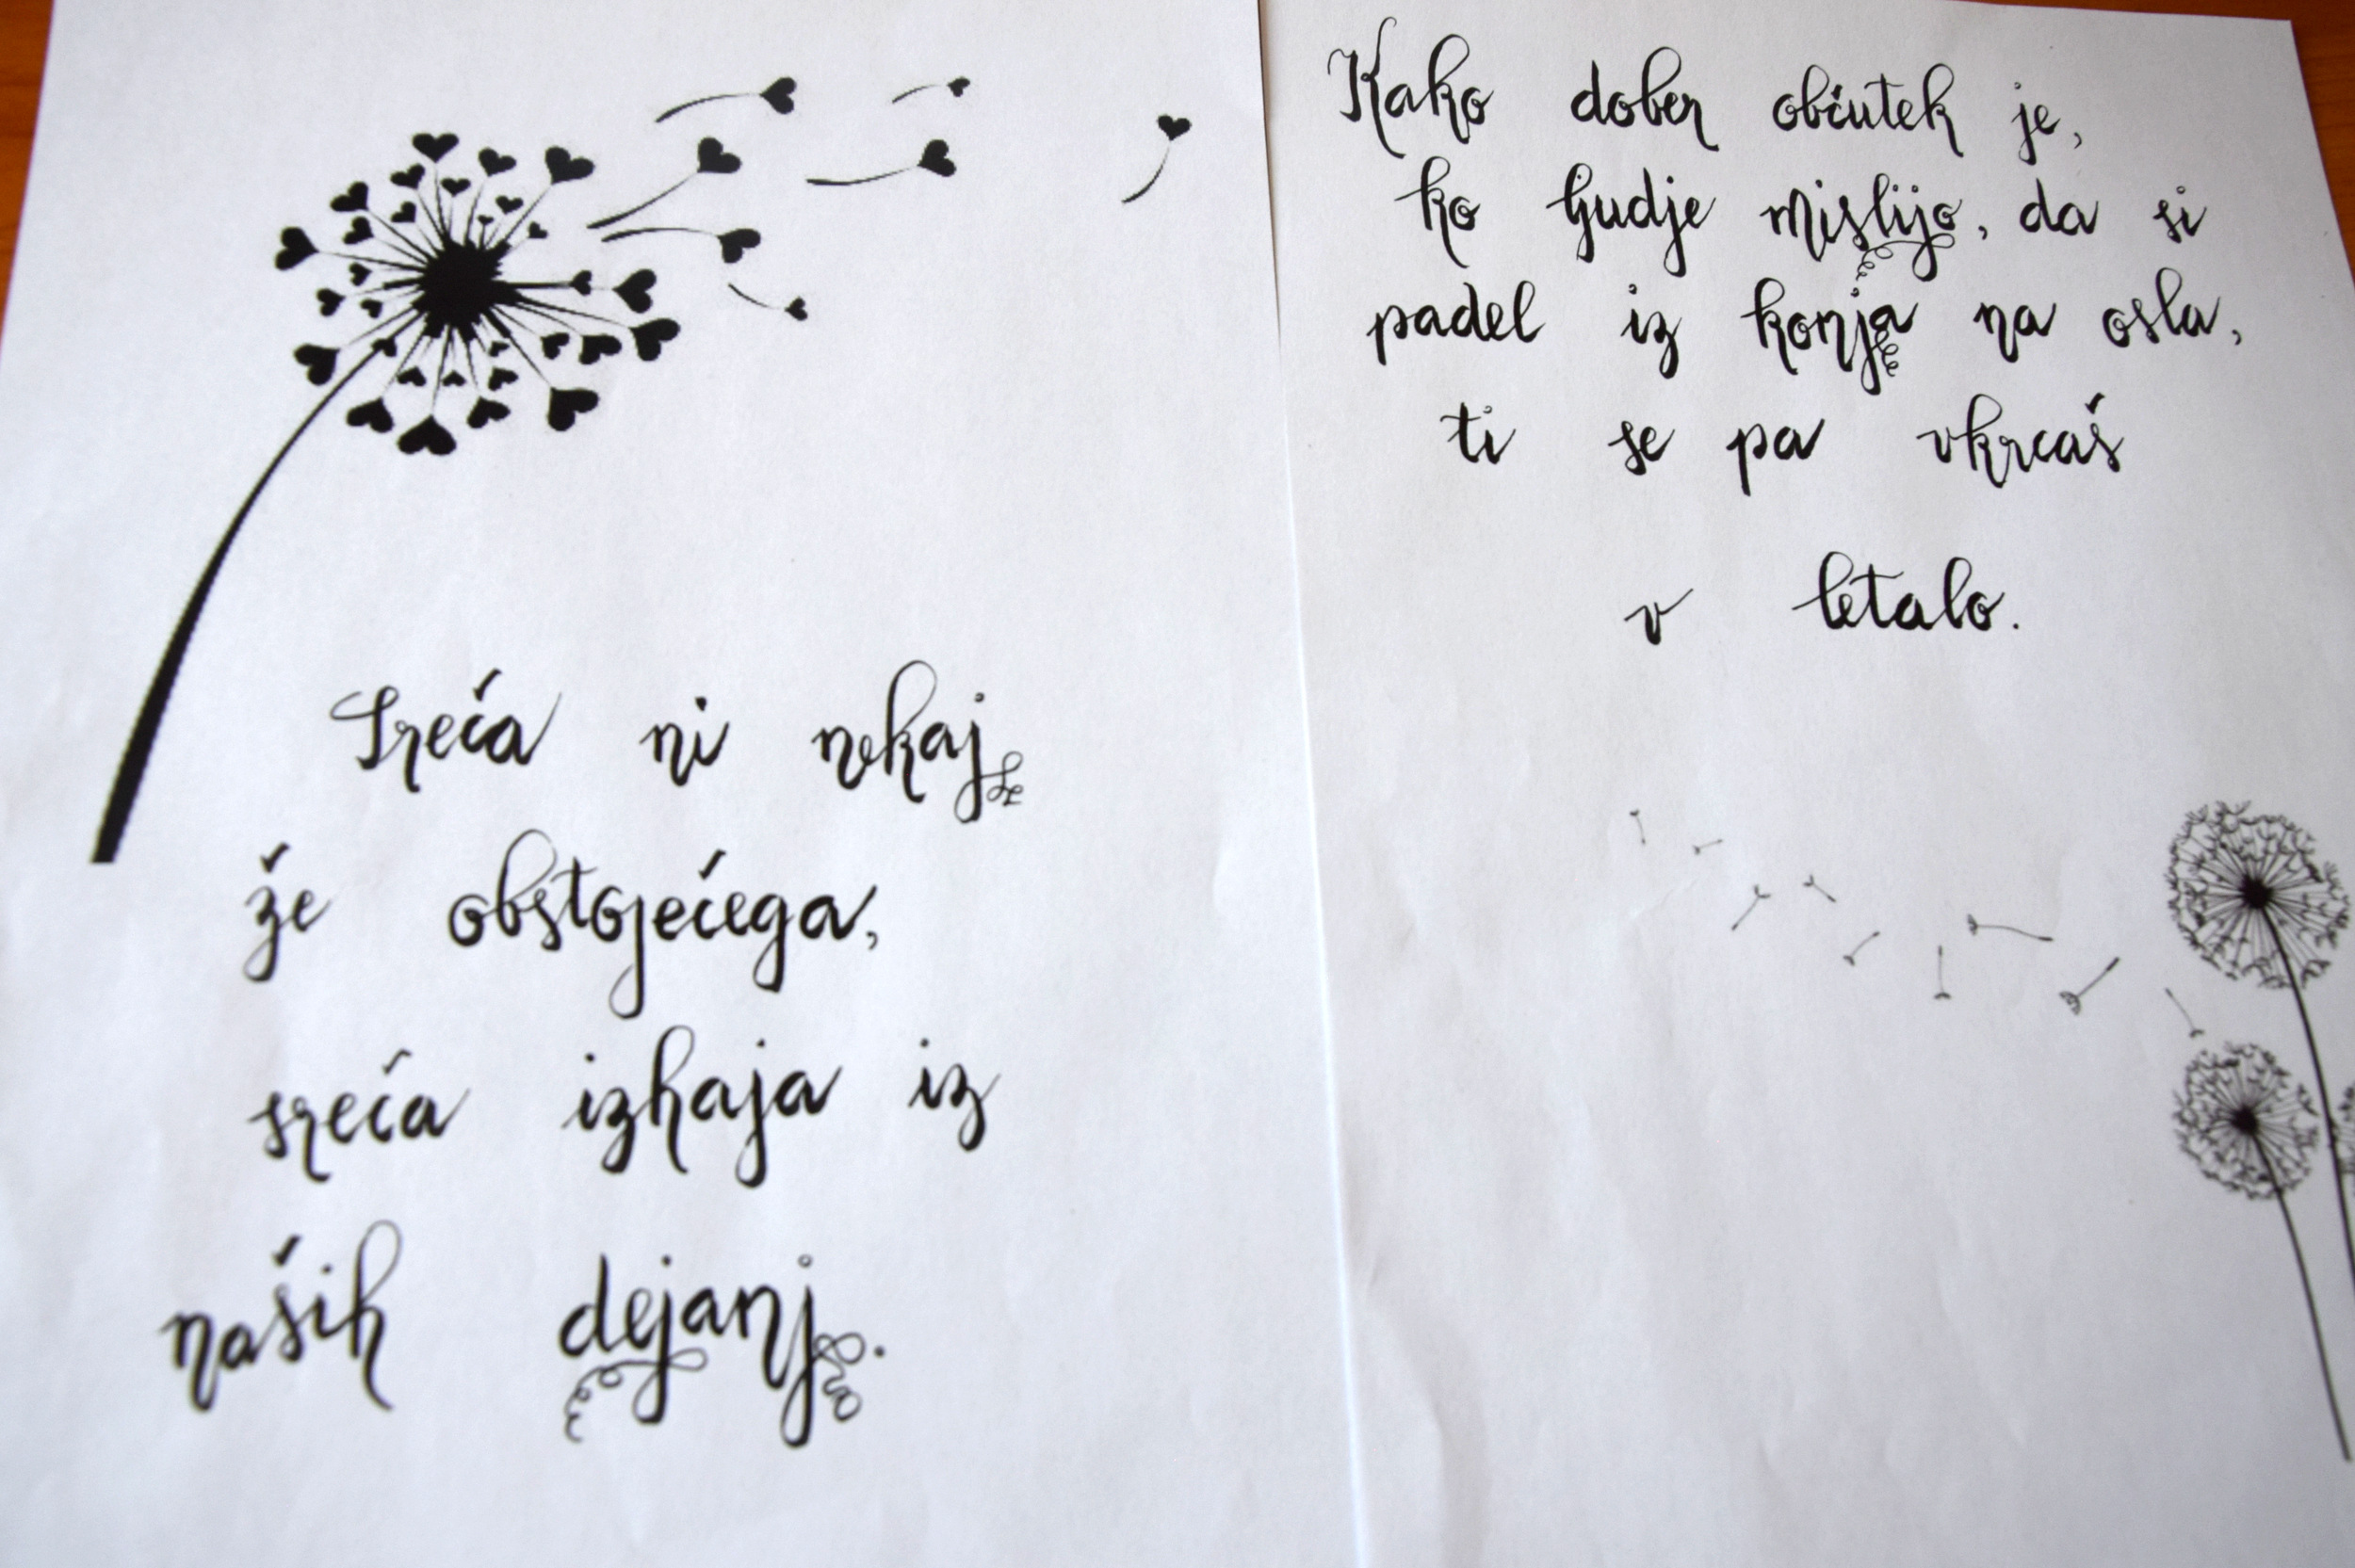 Sreča ni nekaj
že obstoječega,
sreča izhaja iz
naših dejanj.
Kako dober občutek je,
ko ljudje mislijo, da si
padel iz konja na osla,
ti se pa vkrcaš
v letalo.